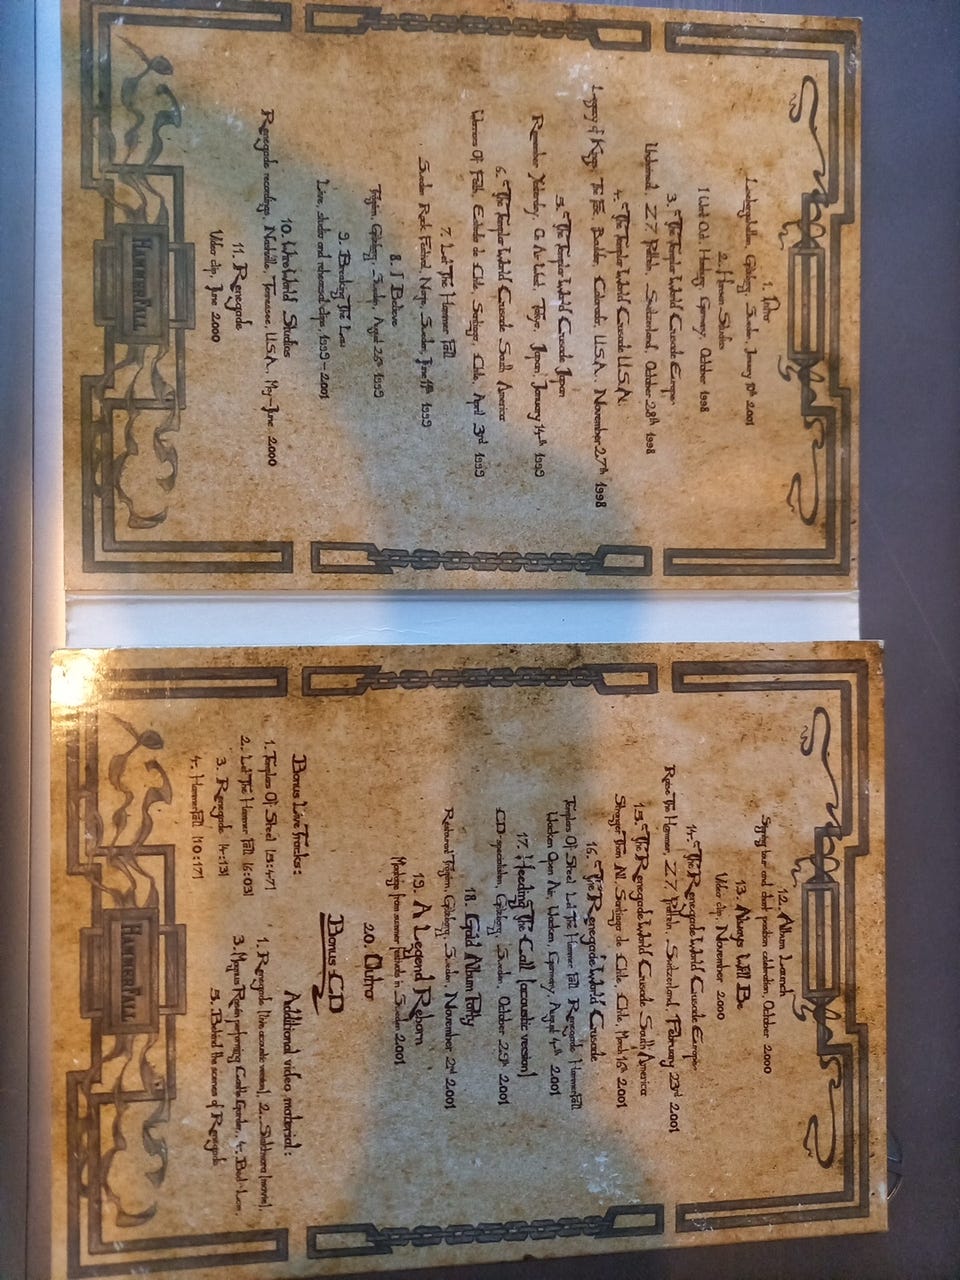 1. Intro
Lisebergshallen, Göteborg, Sweden, January 19th 2001
2. Hansen Studios
I Want Out, Hamburg, Germany, October 1998
3. The Templar World Crusade Europe
Unchained, Z7, Pratteln, Switzerland, October 28th 1998
4. The Templar World Crusade U.S.A.
Legacy of Kings, The Boulder, Colorado, U.S.A., November 27th 1998
5. The Templar World Crusade Japan
Remember Yesterday, Tokyo, Japan, January 14th 1999
6. The Templar World Crusade South America
Warriors Of Faith, Estadio de Chile, Santiago, Chile, April 3rd 1999
7. Let The Hammer Fall
Sweden Rock Festival, Norje, Sweden, June 1999
8. I Believe
Göteborg, Sweden, August 26th 1999
9. Breaking The Law
Live, studio and rehearsal clips, 1999-2001
10. WireWorld Studios
Renegade recordings, Nashville, Tennessee, U.S.A., May-June 2000
11. Renegade
Video clip, June 2000
HAMMERFALL
12. Album Launch
Signing tour and chart position celebration, October 2000
13. Always Will Be
Video clip, November 2000
14. The Renegade World Crusade Europe
Raise The Hammer, Z7, Pratteln, Switzerland, February 23rd 2001
15. The Renegade World Crusade South America
Stronger Than All, Santiago de Chile, Chile, March 16th 2001
16. The Renegade World Crusade
Templars Of Steel, Let The Hammer Fall, Renegade, HammerFall
Wacken Open Air, Wacken, Germany, August 4th 2001
17. Heeding The Call [acoustic version]
CD-specialisten, Göteborg, Sweden, October 25th 2001
18. Gold Album Party
Restaurant Göteborg, Sweden, November 2nd 2001
19. A Legend Reborn
Montage from summer festivals in Sweden 2001
20. Outro
Bonus CD
Bonus Live Tracks:
1. Templars Of Steel [5:47]
2. Let The Hammer Fall [6:03]
3. Renegade [4:13]
4. HammerFall [10:17]
Additional video material:
1. Renegade [live acoustic version], 2. [movie],
3. Magnus Rosén performing 4.
5. Behind the scenes of Renegade
HAMMERFALL